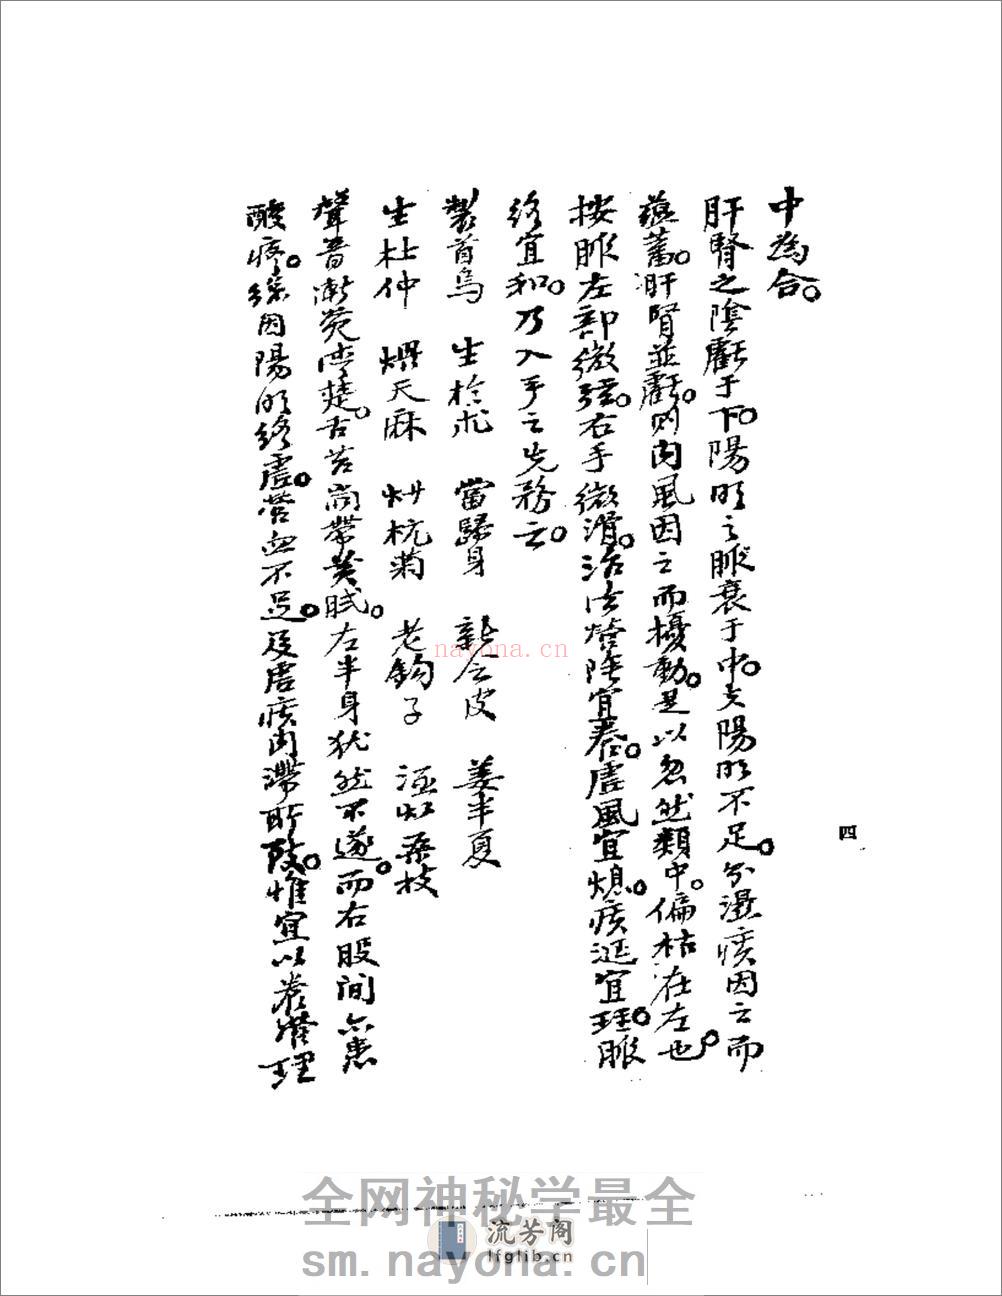 中為合。
肝腎之陰虧于下。陽明之脈衰于中。夫陽明不足。則濕痰因之而
蘊蓄。肝腎並虧。則內風因之而擾動。是以忽然類中。偏枯在左也。
按脈左部微弦。右手微滑。治法營陰宜養。虛風宜熄。痰涎宜理。脈
絡宜和。乃入手之先務云。
製首烏 生於朮 當歸身 新會皮 姜半夏
生杜仲 煨天麻 炒杭菊 老鈎子 酒炒桑枝
聲音漸覺清楚。舌苔尚帶黃膩。左半身犹然不遂。而右股間亦患
酸疼。緣因陽明絡虛。營血不足。及虛痰內滯所致。惟宜以養營理
四
nayona.cn
全网神秘学最全
流芳阁
lfglib.cn
sm.nayona.cn